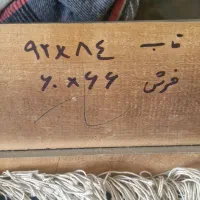 قاب ۹۲x۸٤
فرش ۶۰x۶۶